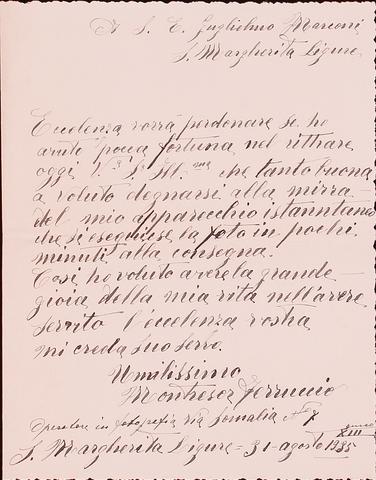 A S. E. Guglielmo Marconi
S. Margherita Ligure
Eccelenza vorrà perdonare se ho
avuto pocca fortuna nel rittrare
oggi V.ª S. Ill.ma che tanto buona
a voluto degnarsi alla mirra
del mio apparecchio istanntaneo
che si eseguisse la foto in pochi
minuti alla consegna.
Così ho voluto avere la grande
gioia della mia vita nell'avere
servito l'eccelenza vostra
mi creda suo servo.
Umilissimo
Montresor Ferruccio
Operatore in fotografia via Somalia N 7
anno XIII
S. Margherita Ligure = 31-agosto 1935